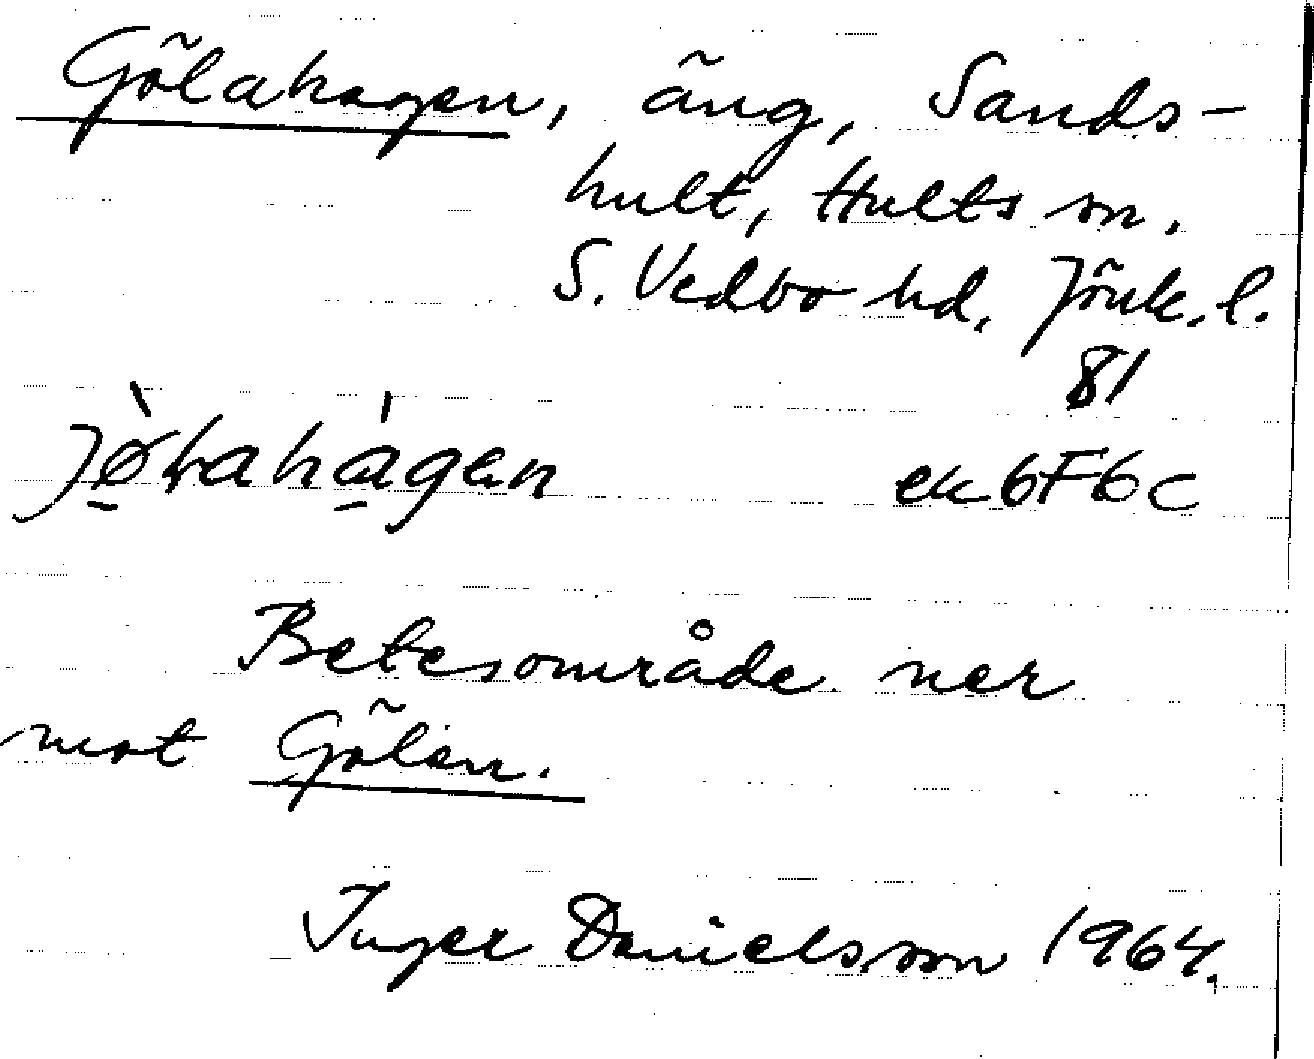 Gölahagen, äng, Sands-
hult, Hults sn.
S. Vedbo hd, Jönk. l.
81
jø̠̀ɫahá̠gen ek 6F6c
Betesområde ner
mot Gölen.
Inger Danielsson 1964.